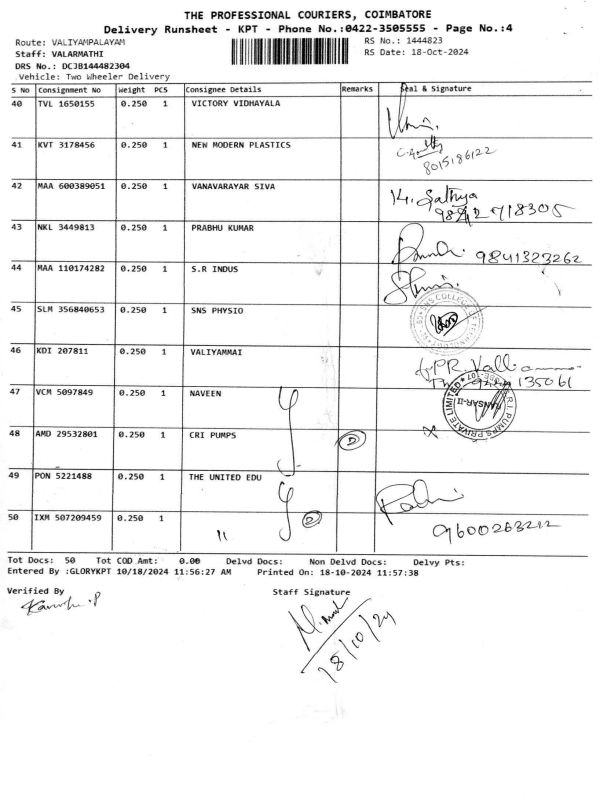 THE PROFESSIONAL COURIERS, COIMBATORE
Delivery Runsheet - KPT - Phone No.:0422-3505555 - Page No.:4
Route: VALIYAMPALAYAM
RS No.: 1444823
Staff: VALARMATHI
RS Date: 18-Oct-2024
DRS No.: DCJB144482304
Vehicle: Two Wheeler Delivery
S No Consignment No Weight PCS Consignee Details Remarks Seal & Signature
40 TVL 1650155 0.250 1 VICTORY VIDHAYALA
41 KVT 3178456 0.250 1 NEW MODERN PLASTICS
8015186122
42 MAA 600389051 0.250 1 VANAVARAYAR SIVA
K. Sathya
9842 718305
43 NKL 3449813 0.250 1 PRABHU KUMAR
9841323262
44 MAA 110174282 0.250 1 S.R INDUS
45 SLM 356840653 0.250 1 SNS PHYSIO
SNS COLLEGE OF TECHNOLOGY
46 KDI 207811 0.250 1 VALIYAMMAI
47 VCM 5097849 0.250 1 NAVEEN
48 AMD 29532801 0.250 1 CRI PUMPS
2
C.R.I. PUMPS PRIVATE LIMITED
49 PON 5221488 0.250 1 THE UNITED EDU
50 IXM 507209459 0.250 1 " 2
9600263212
Tot Docs: 50 Tot COD Amt: 0.00 Delvd Docs: Non Delvd Docs: Delvy Pts:
Entered By :GLORYKPT 10/18/2024 11:56:27 AM Printed On: 18-10-2024 11:57:38
Verified By Staff Signature
18/10/24